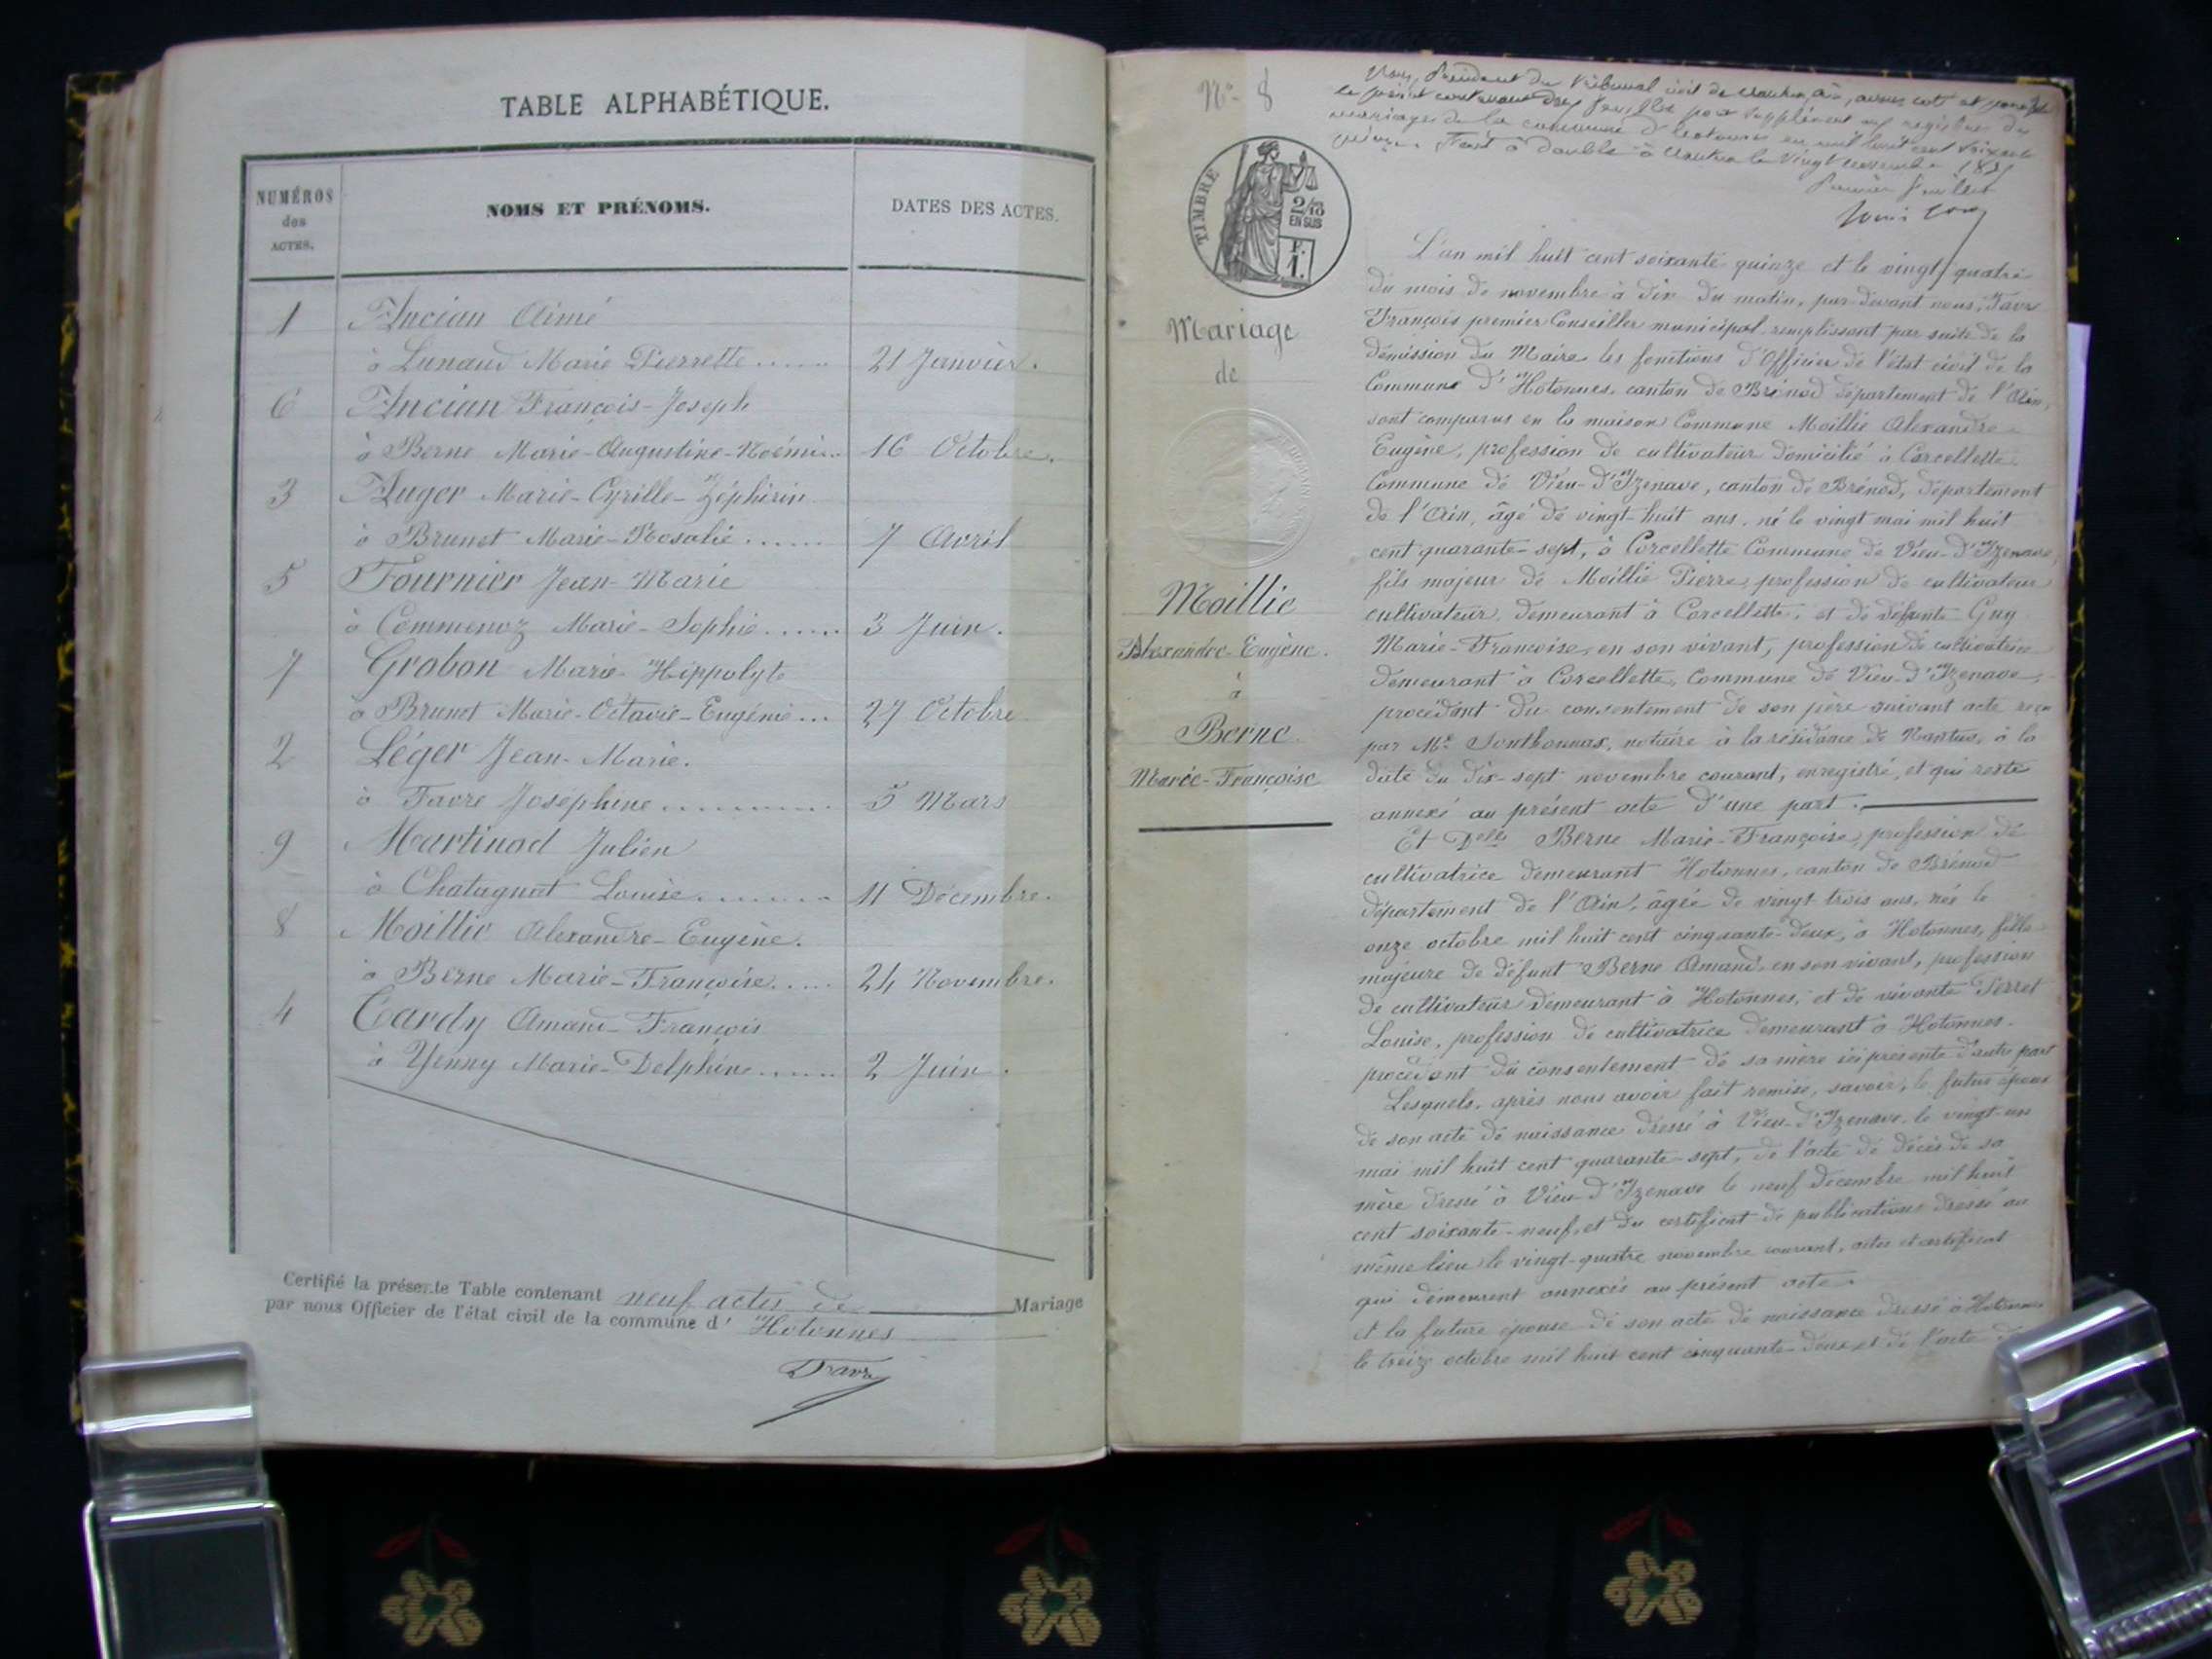 TABLE ALPHABÉTIQUE.
NUMÉROS des ACTES.
NOMS ET PRÉNOMS.
DATES DES ACTES.
1 Ancian Aimé
à Lunaud Marie Pierrette...... 21 Janvier.
6 Ancian François-Joseph
à Berne Marie-Augustine-Noémie.. 16 Octobre.
3 Auger Marie-Cyrille-Zéphirin
à Brunet Marie-Rosalie...... 7 Avril
5 Fournier Jean-Marie
à Commenoz Marie-Sophie...... 3 Juin.
7 Grobon Marie-Hippolyte
à Brunet Marie-Octavie-Eugénie... 27 Octobre
2 Léger Jean-Marie.
à Favre Joséphine.......... 5 Mars
9 Martinod Julien
à Chatagnat Louise........ 11 Décembre.
8 Moillie Alexandre-Eugène.
à Berne Marie-Françoise..... 24 Novembre.
4 Tardy Amand-François
à Yenny Marie-Delphine...... 2 Juin.
Certifié la présente Table contenant neuf actes de Mariage
par nous Officier de l'état civil de la commune d' Hotonnes
Favre
N° 8
Nous, Président du Tribunal civil de Nantua, Ain, avons coté et
le présent contenant feuilles pour supplément aux registres de
mariages de la commune d'Hotonnes en mil huit cent soixante
quinze. Fait à double à Nantua le vingt novembre 1875
Premier feuillet
TIMBRE
2/10
EN SUS
F.
1.
Mariage
de
Moillie
Alexandre-Eugène.
à
Berne
Marie-Françoise
L'an mil huit cent soixante quinze et le vingt quatre
du mois de novembre à dix du matin, par-devant nous, Favre
François premier Conseiller municipal remplissant par suite de la
démission du Maire les fonctions d'Officier de l'état civil de la
Commune d'Hotonnes, canton de Brénod département de l'Ain,
sont comparus en la maison Commune Moillie Alexandre
Eugène, profession de cultivateur domicilié à Corcellette
Commune de Vieu-d'Izenave, canton de Brénod, département
de l'Ain, âgé de vingt-huit ans, né le vingt mai mil huit
cent quarante-sept, à Corcellette Commune de Vieu-d'Izenave,
fils majeur de Moillie Pierre, profession de cultivateur
cultivateur, demeurant à Corcellette, et de défunte Guy
Marie-Françoise, en son vivant, profession de cultivatrice
demeurant à Corcellette, Commune de Vieu-d'Izenave,
procédant du consentement de son père suivant acte reçu
par Me Sonthonnax, notaire à la résidence de Nantua, à la
date du dix-sept novembre courant, enregistré, et qui reste
annexé au présent acte d'une part.
Et Delle Berne Marie-Françoise, profession de
cultivatrice demeurant Hotonnes, canton de Brénod
département de l'Ain, âgée de vingt trois ans, née le
onze octobre mil huit cent cinquante-deux, à Hotonnes, fille
majeure de défunt Berne Amand, en son vivant, profession
de cultivateur demeurant à Hotonnes, et de vivante Perret
Louise, profession de cultivatrice demeurant à Hotonnes.
procédant du consentement de sa mère ici présente d'autre part
Lesquels, après nous avoir fait remise, savoir, le futur époux
de son acte de naissance dressé à Vieu-d'Izenave, le vingt-un
mai mil huit cent quarante-sept, de l'acte de décès de sa
mère dressé à Vieu-d'Izenave le neuf décembre mil huit
cent soixante-neuf, et du certificat de publications dressé au
même lieu le vingt-quatre novembre courant, actes et certificat
qui demeurent annexés au présent acte.
et la future épouse de son acte de naissance dressé à Hotonnes
le treize octobre mil huit cent cinquante-deux et de l'acte de